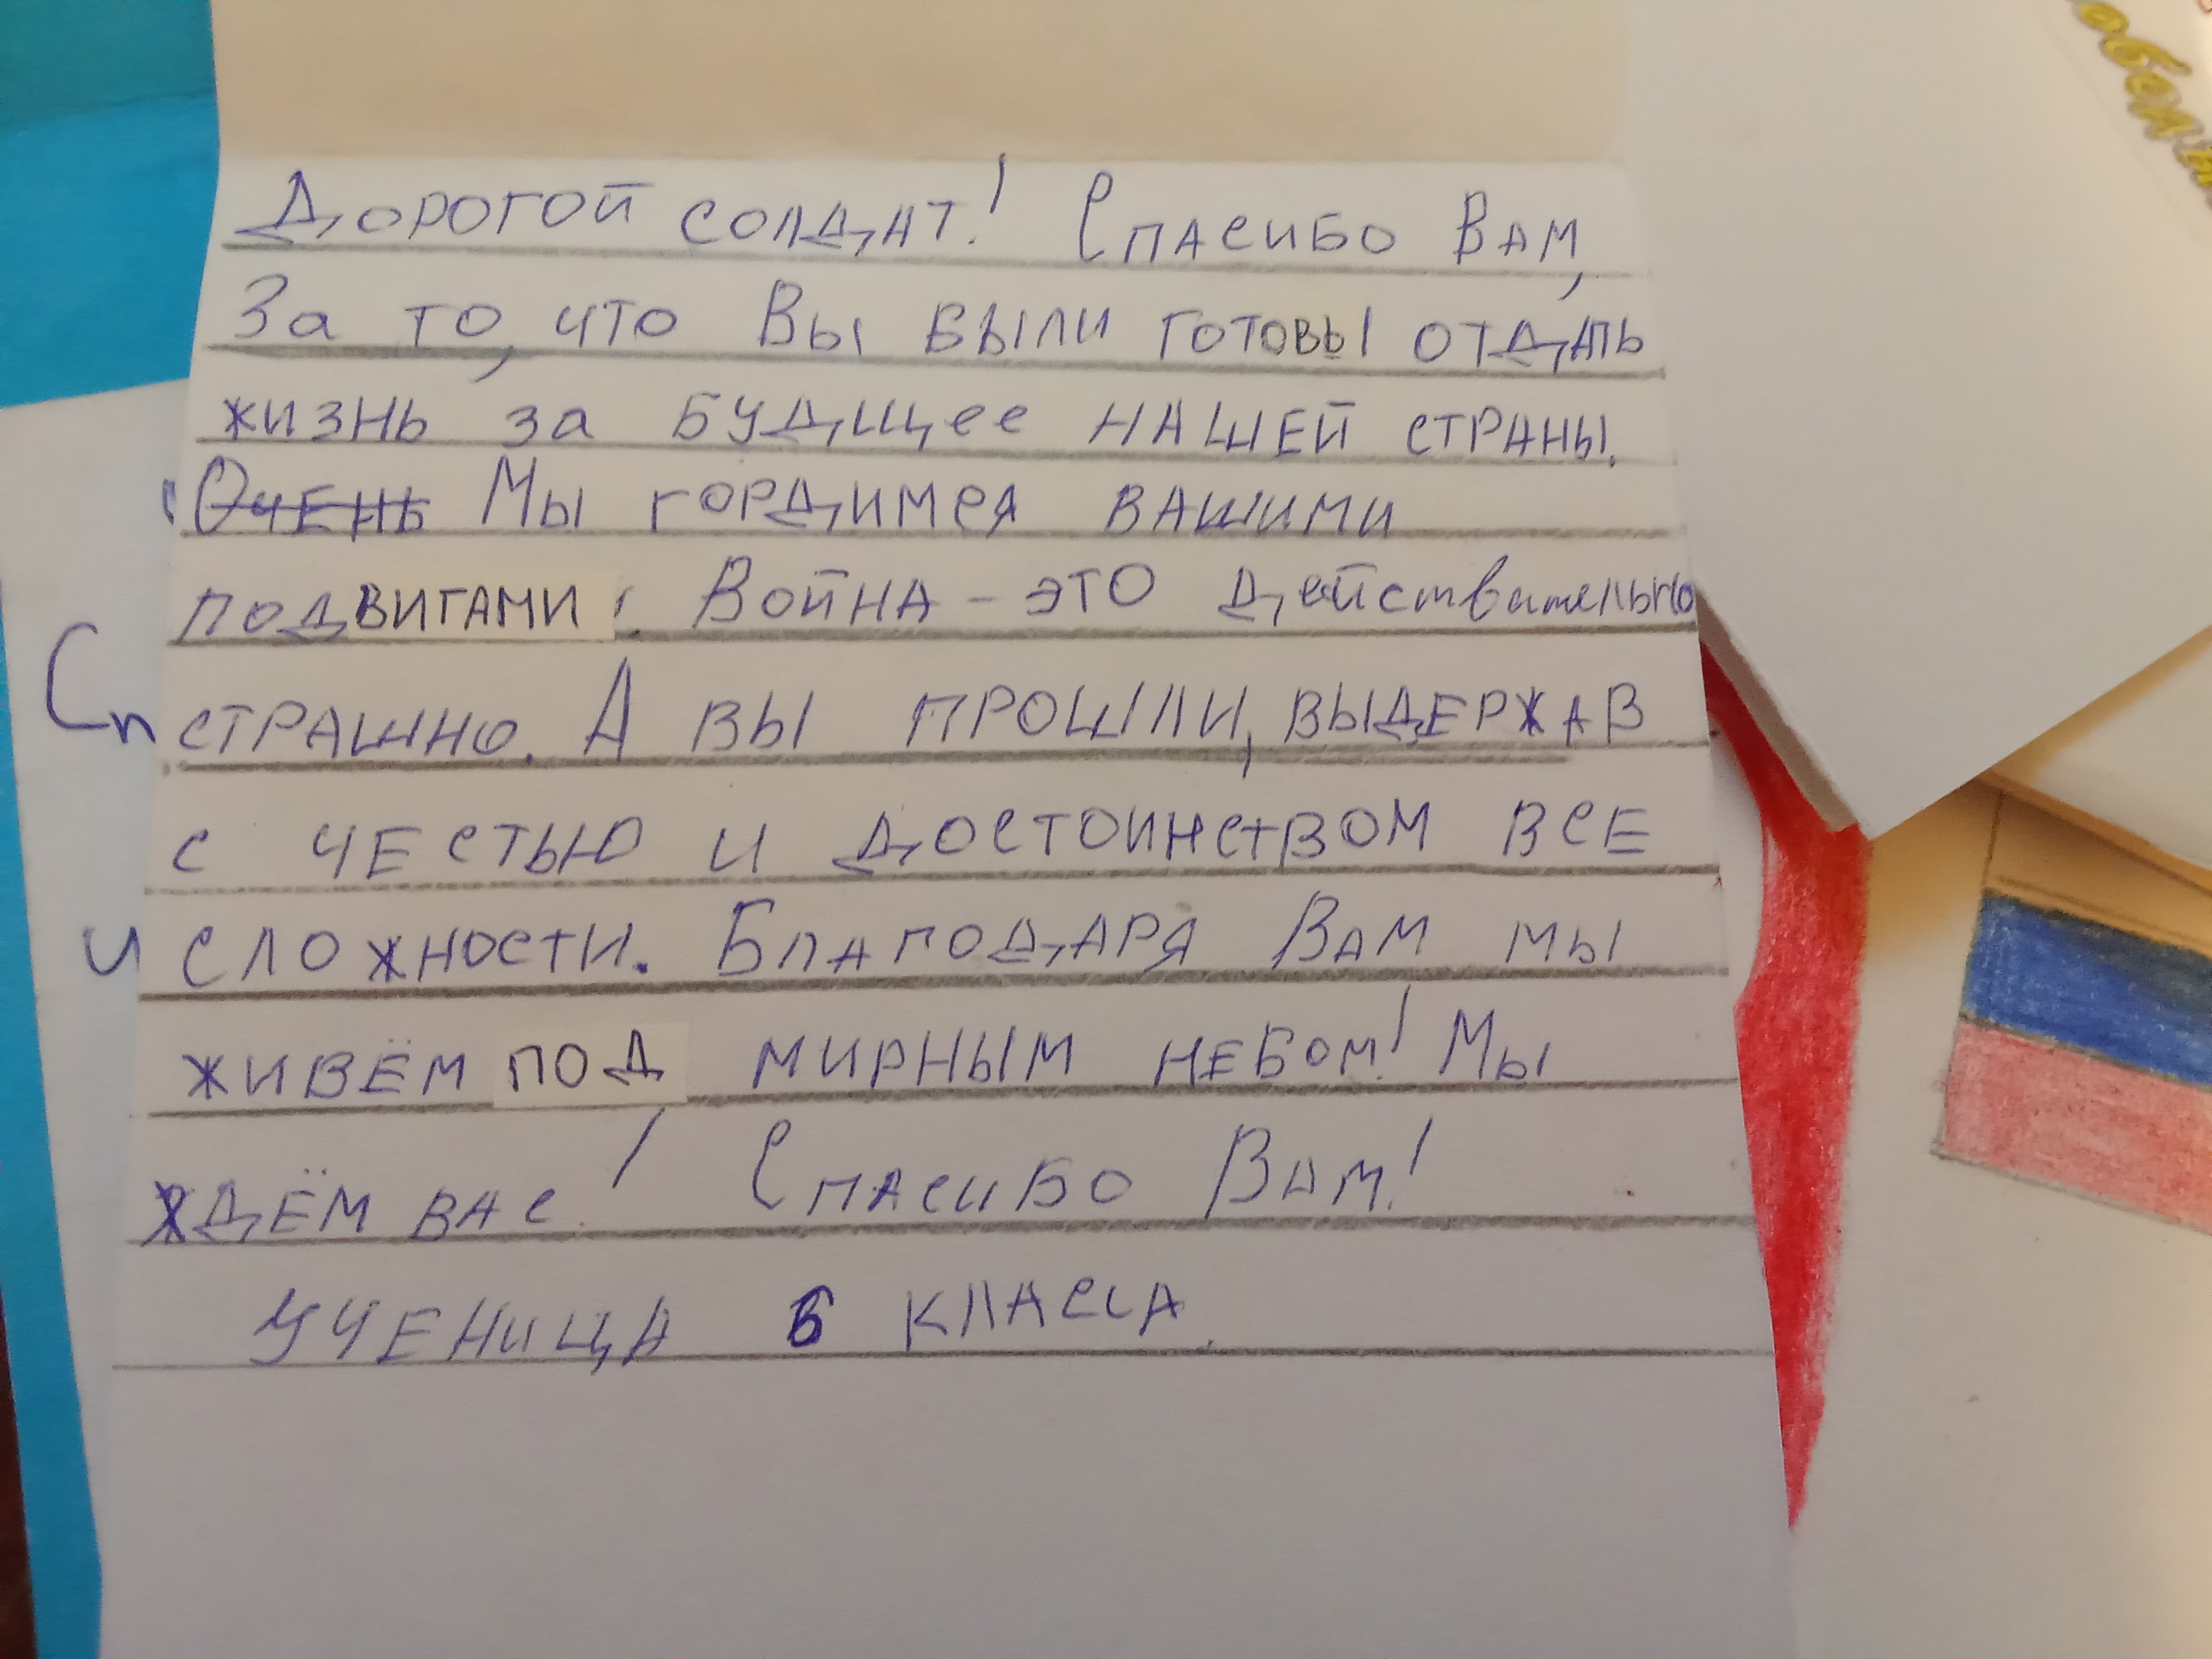 Дорогой солдат! Спасибо Вам,
За то, что Вы были готовы отдать
жизнь за будущее нашей страны.
Очень Мы гордимся вашими
подвигами! Война - это действительно
страшно. А вы прошли, выдержав
с честью и достоинством все
сложности. Благодаря Вам мы
живём под мирным небом! Мы
ждём вас! Спасибо Вам!
Ученица 6 класса.
Сп
и